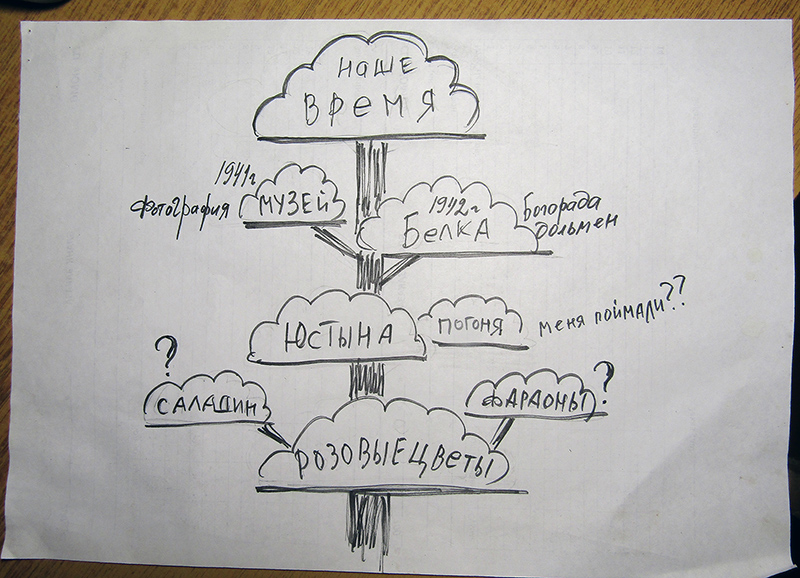 наше
время
1941г
фотография
музей
1942г
Белка
Богорада
дольмен
Юстына
погоня
меня поймали??
?
Саладин
фараоны?
розовые цветы